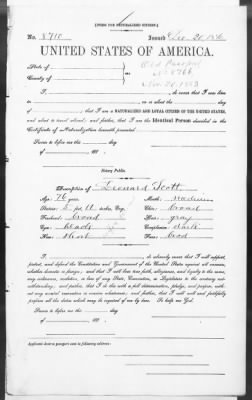 [FORM FOR NATURALIZED CITIZEN.]
No. 8710 Issued Dec. 20 1886
UNITED STATES OF AMERICA.
State of
Old Passport
County of
No. 8766
Nov. 20, 1883
I, do swear that I was born
in on or about the day of
, that I am a NATURALIZED AND LOYAL CITIZEN OF THE UNITED STATES,
and about to travel abroad; and further, that I am the Identical Person described in the
Certificate of Naturalization herewith presented.
Sworn to before me this day
of 188 .
Notary Public.
Description of Leonard Scott
Age: 76 years Mouth: medium
Stature: 5 feet 11 inches, Eng. Chin: broad
Forehead: broad Hair: gray
Eyes: Complexion: dark
Nose: short Face:
I, do solemnly swear that I will support,
protect, and defend the Constitution and Government of the United States against all enemies,
whether domestic or foreign; and that I will bear true faith, allegiance, and loyalty to the same,
any ordinance, resolution, or law of any State, Convention, or Legislature to the contrary not-
withstanding; and further, that I do this with a full determination, pledge, and purpose, with-
out any mental reservation or evasion whatsoever; and further, that I will well and faithfully
perform all the duties which may be required of me by law. So help me God.
Sworn to before me this day
of 188 .
Applicant desires passport sent to following address: